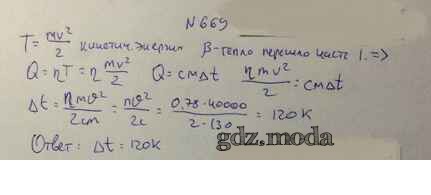 N669
T = mv²/2 кинетич. энергия В-тепло перешло часть 1. =>
Q = ηT = η mv²/2 Q = cmΔt ηmv²/2 = cmΔt
Δt = ηmv²/2cm = ηv²/2c = 0,78·40000/2·130 = 120K
Ответ: Δt = 120K
gdz.moda